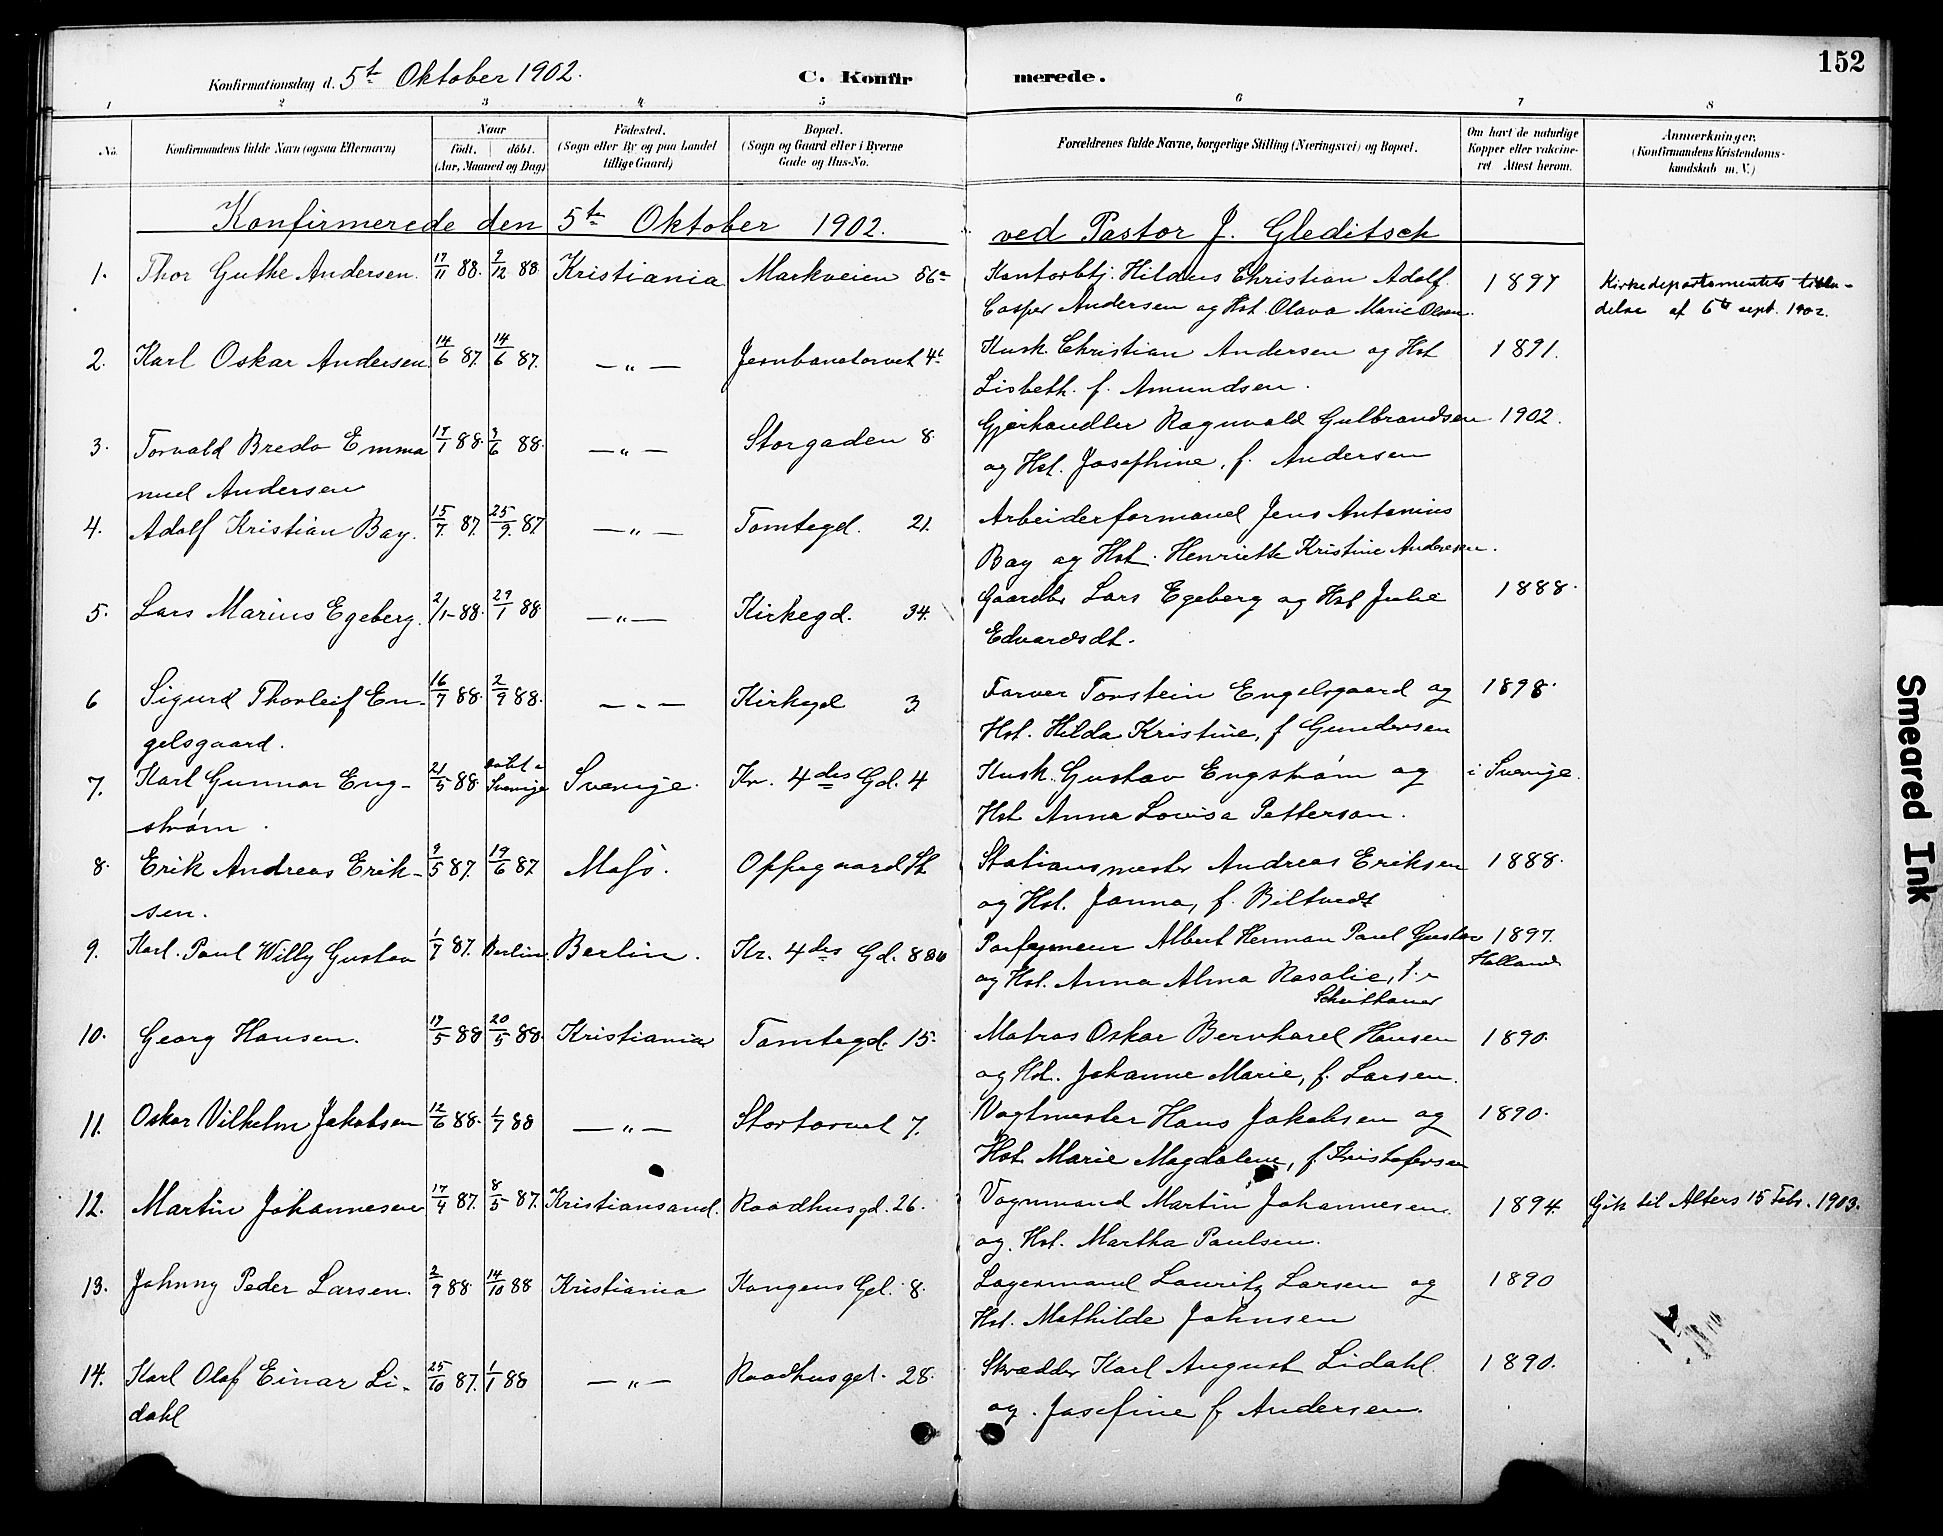 152
Konfirmationsdag d. 5te Oktober 1902. C. Konfirmerede.
1 2 3 4 5 6 7 8
No.
Konfirmandens fulde Navn (ogsaa Efternavn)
Naar
Födt. döbt.
(Aar, Maaned og Dag)
Födested.
(Sogn eller By og paa Landet
tillige Gaard)
Bopæl.
(Sogn og Gaard eller i Byerne
Gade og Hus-No.
Forældrenes fulde Navne, borgerlige Stilling (Næringsvei) og Bopæl.
Om havt de naturlige
Kopper eller vakcine-
ret Attest herom.
Anmærkninger.
(Konfirmandens Kristendoms-
kundskab m. V.)
Konfirmerede den 5te Oktober 1902. ved Pastor J. Gleditsch
1. Thor Guthe Andersen. 17/11 88. 9/12 88 Kristiania Markveien 56a Kontorbtj. Hildeus Christian Adolf 1897 Kirkedepartementets tilla-
Casper Andersen og Hst. Olava Marie Olsen. delse af 6te sept. 1902.
2. Karl Oskar Andersen 14/6 87. 14/6 87. — „ — Jernbanetorvet 4b Kusk Christian Andersen og Hst 1891.
Lisbeth. f. Amundsen.
3. Torvald Bredo Emma 17/1 88. 3/6 88. — „ — Storgaden 8. Gjørhandler Ragnvald Gulbrandsen 1902.
nuel Andersen og Hst. Josephine, f. Andersen
4. Adolf Kristian Bay. 15/7. 87. 25/9. 87. — „ — Tomtegd. 21. Arbeiderformand Jens Antonius
Bay og Hst. Henriette Kristine Andersen.
5. Lars Marius Egeberg. 2/1-88. 29/1 88 — „ — Kirkegd. 34. Gaardbr Lars Egeberg og Hst Julie 1888.
Edvardsdt.
6 Sigurd Thorleif En- 16/7 88. 2/9 88. — „ — Kirkegd 3 Farver Torstein Engelsgaard og 1898.
gelsgaard. Hst. Hilda Kristine, f Gundersen
7. Karl Gunnar Eng- 21/5 88. døbt i Sverige Sverige. Kr. 4des Gd. 4 Kusk. Gustav Engstrøm og i Sverige.
strøm. Hst Anna Lovisa Petterson.
8. Erik Andreas Erik- 9/5 87. 19/6 87 Moss. Oppegaard St Stationsmester Andreas Eriksen 1888.
sen. og Hst. Janna, f. Biltvedt
9. Karl. Paul Willy Gustav 1/7 87. Berlin. Berlin. Kr. 4des Gd. 8 Albert Herman Paul Gustav 1897.
og Hst. Anna Alma Rosalie, f. Holland
10. Georg Hansen. 17/5 88 20/5 88. Kristiania Tomtegd. 15. Matros Oskar Bernhard Hansen 1890.
og Hst. Johanne Marie, f. Larsen.
11. Oskar Vilhelm Jakobsen 12/6 88. 1/7 88 — „ — Stortorvet 7. Vagtmester Hans Jakobsen og 1890.
Hst Marie Magdalene, f. Kristofersen
12. Martin Johannesen 17/4 87. 8/5 87. Kristiansand. Raadhusgd. 26. Vognmand Martin Johannesen 1894. Gik til Alters 15 Febr. 1903.
og. Hst. Martha Paulsen.
13. Johnny Peder Larsen. 2/9 88 14/10 88 Kristiania Kongens Gd. 8. Lagermand Lauritz Larsen og 1890
Hst. Mathilde Johnsen
14. Karl Olaf Einar Li- 25/10 87. 1/1 88 — „ — Raadhusgd. 28. Skrædder Karl August Lidahl 1890.
dahl og. Josefine f Andersen.
Smeared Ink